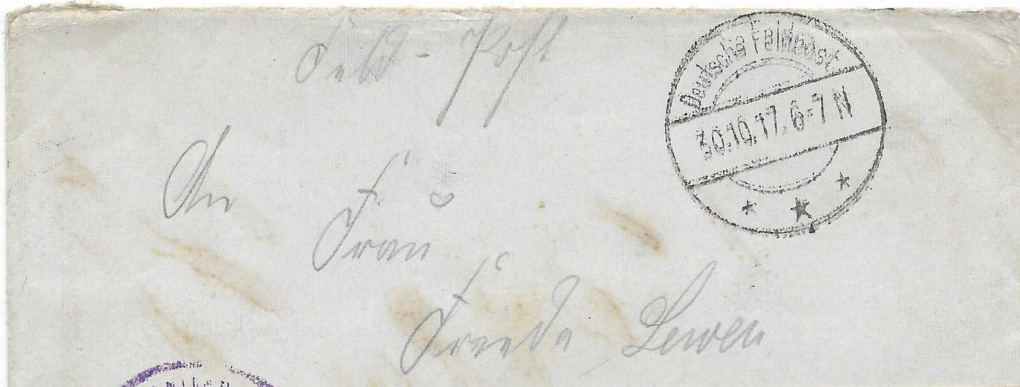 Feld-Post
Deutsche Feldpost
30.10.17. 6-7 N
An
Frau
Frieda Lewen